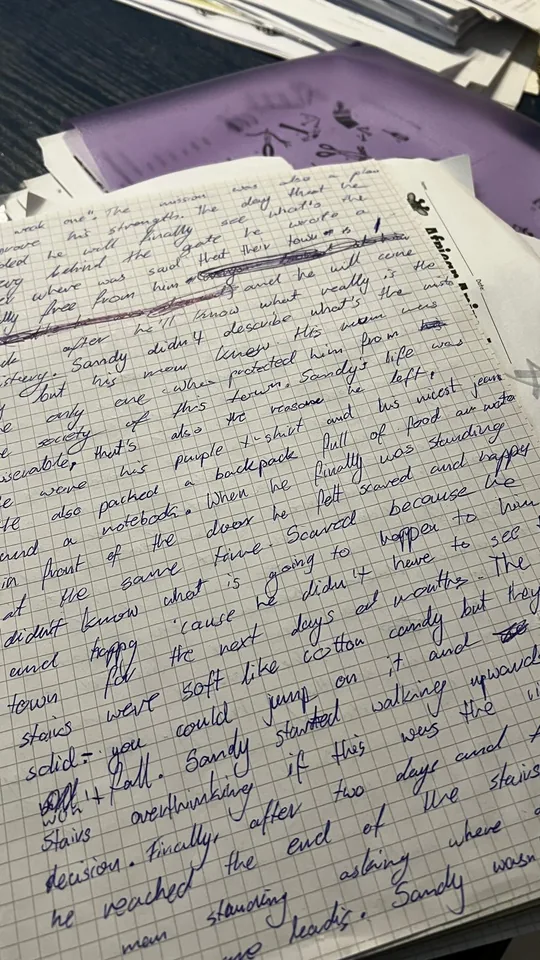 weak one". The mission was also a plan
his strength. The day that he
he will finally see what's the
behind the gate he wrote a
where was said that their town is
free from him
and he will come
after he'll know what really is the
Sandy didn't describe what's the
but his mom knew. His mom was
only one who protected him from
society of this town. Sandy's life was
that's also the reason he left.
his purple t-shirt and his nicest jeans
also packed a backpack full of food
and a notebook. When he finally was standing
in front of the door he felt scared and happy
at the same time. Scared because he
didn't know what is going to happen to him
and happy 'cause he didn't have to see
town for the next days or months. The
stairs were soft like cotton candy but they
solid - you could jump on it and
won't fall. Sandy started walking upwards
stairs overthinking if this was the
decision. Finally, after two days and
he reached the end of the stairs
man standing asking where
leads. Sandy wasn
African